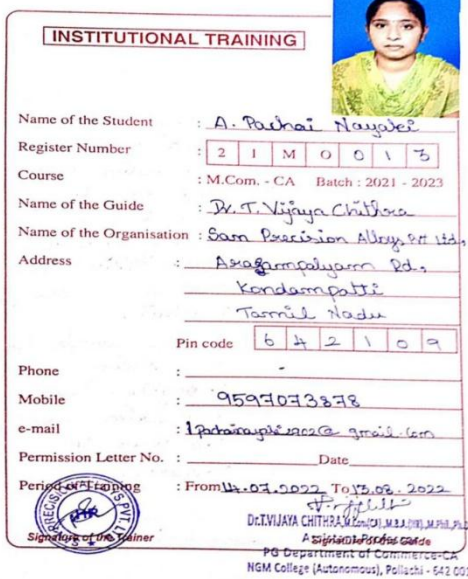 INSTITUTIONAL TRAINING
Name of the Student : A. Pachai Nayaki
Register Number : 2 1 M 0 0 1 3
Course : M.Com. - CA Batch : 2021 - 2023
Name of the Guide : Dr. T. Vijaya Chithra
Name of the Organisation : Sam Precision Alloys Pvt Ltd,
Address : Arasampalyam Rd,
Kondampatti
Tamil Nadu
Pin code 6 4 2 1 0 9
Phone : -
Mobile : 9597073878
e-mail : @ gmail.com
Permission Letter No. : Date
Period of Training : From 14.07.2022 To 13.08.2022
Dr.T.VIJAYA CHITHRA, M.Com(CA), M.B.A, M.Phil, Ph.D
Signature of the Trainer Signature of the Guide
Assistant Professor
PG Department of Commerce-CA
NGM College (Autonomous), Pollachi - 642 001